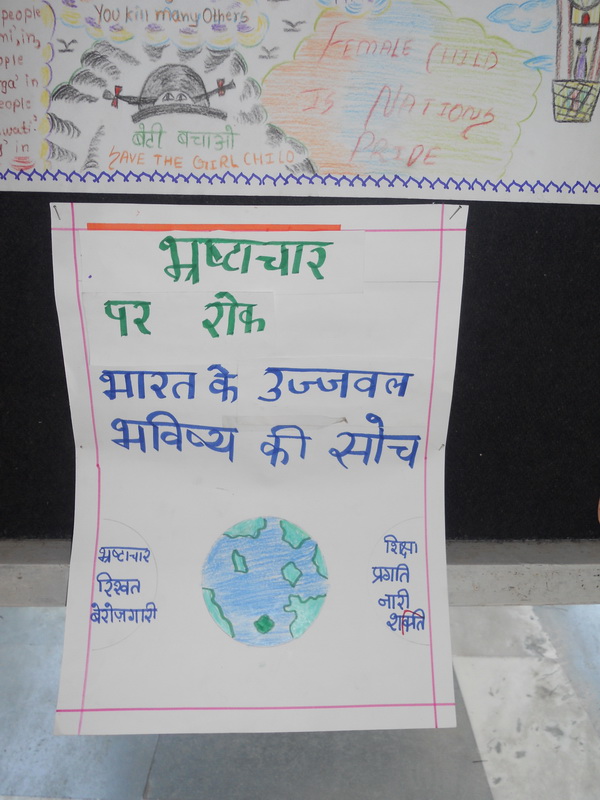 people
You kill many Others
in
people
in
बेटी बचाओ
SAVE THE GIRL CHILD
FEMALE CHILD
IS NATIONS
PRIDE
भ्रष्टाचार
पर रोक
भारत के उज्जवल
भविष्य की सोच
भ्रष्टाचार
रिश्वत
बेरोजगारी
शिक्षा
प्रगति
नारी
शक्ति